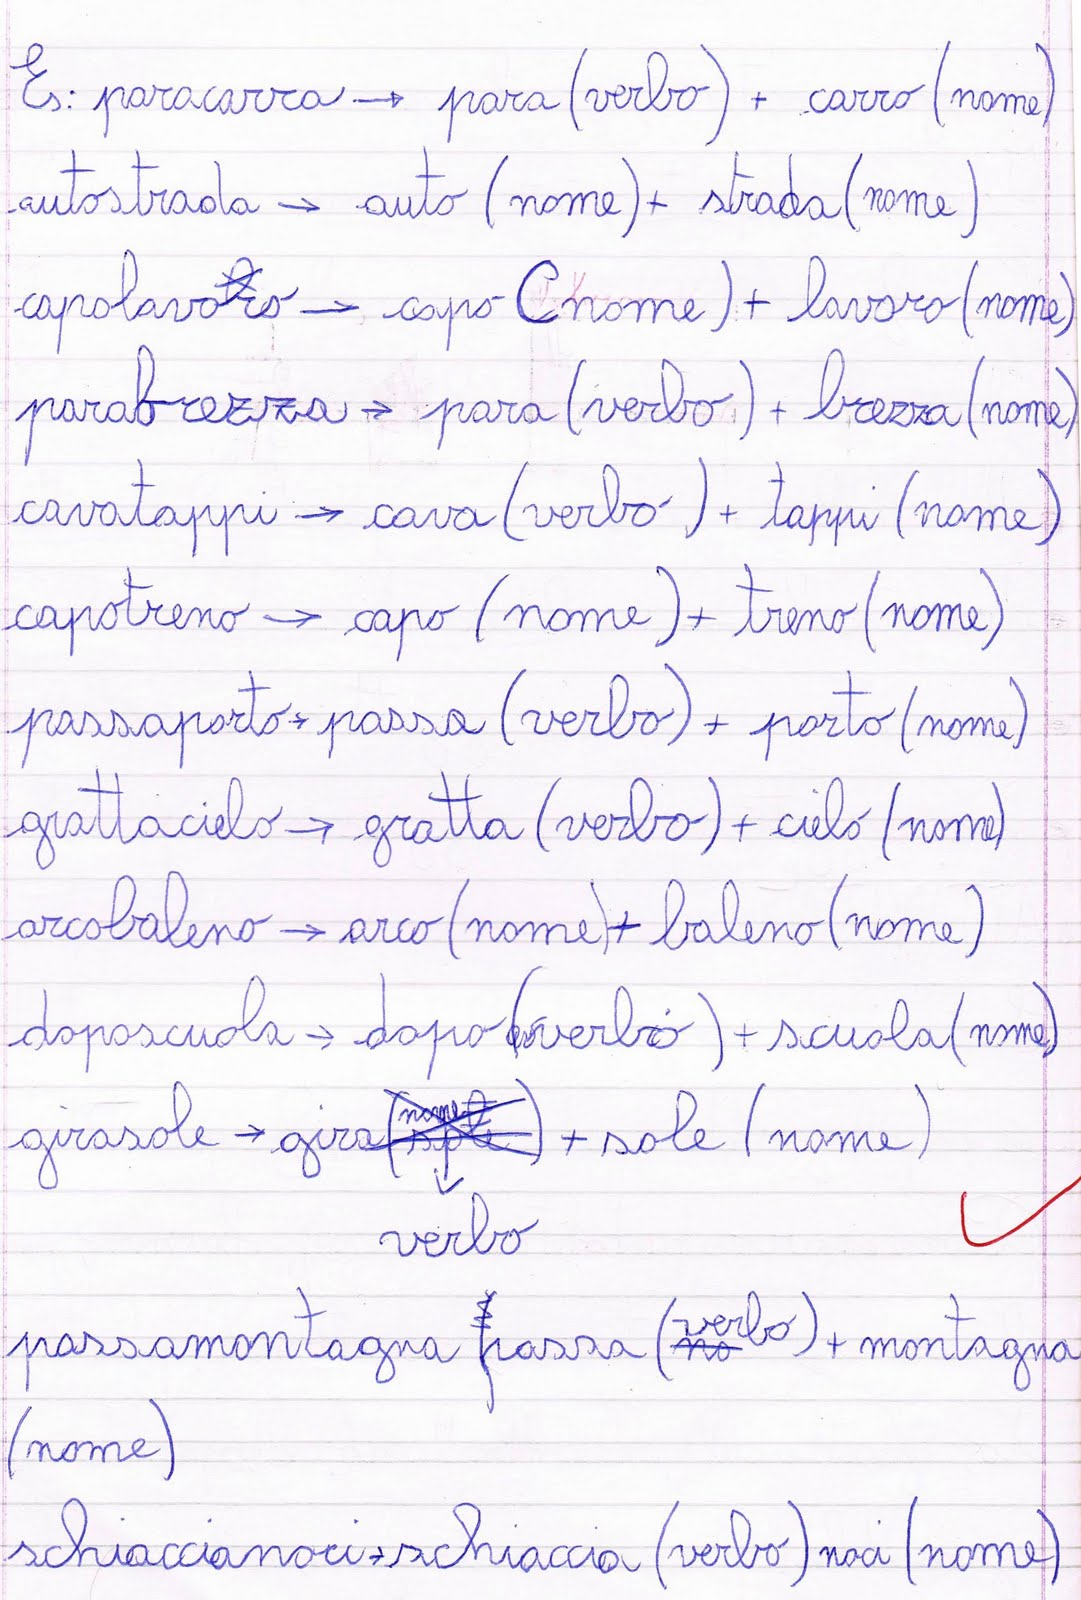 Es: paracarra → para (verbo) + carro (nome)
autostrada → auto (nome) + strada (nome)
capolavoro → capo (nome) + lavoro (nome)
parabrezza → para (verbo) + brezza (nome)
cavatappi → cava (verbo) + tappi (nome)
capotreno → capo (nome) + treno (nome)
passaporto → passa (verbo) + porto (nome)
grattacielo → gratta (verbo) + cielo (nome)
arcobaleno → arco (nome) + baleno (nome)
doposcuola → dopo (verbo) + scuola (nome)
girasole → gira (nome) + sole (nome)
verbo
passamontagna passa (verbo) + montagna
(nome)
schiaccianoci → schiaccia (verbo) noci (nome)